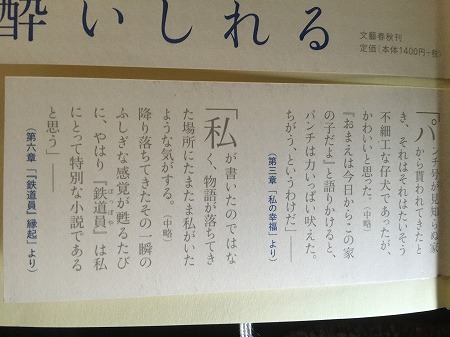 酔いしれる
文藝春秋刊
定価(本体1400円+税)
「パンチ号が見知らぬ家
から貰われてきたと
き、それはそれはたいそう
不細工な仔犬であったが、
かわいいと思った。(中略)
『おまえは今日からこの家
の子だよ』と語りかけると、
パンチは力いっぱい吠えた。
ちがう、というわけだ」――
(第三章「私の幸福」より)
「私が書いたのではな
く、物語が落ちてき
た場所にたまたま私がいた
ような気がする。(中略)
降り落ちてきたその一瞬の
ふしぎな感覚が甦るたび
に、やはり『鉄道員』は私
にとって特別な小説である
と思う」――
(第六章「『鉄道員』縁起」より)